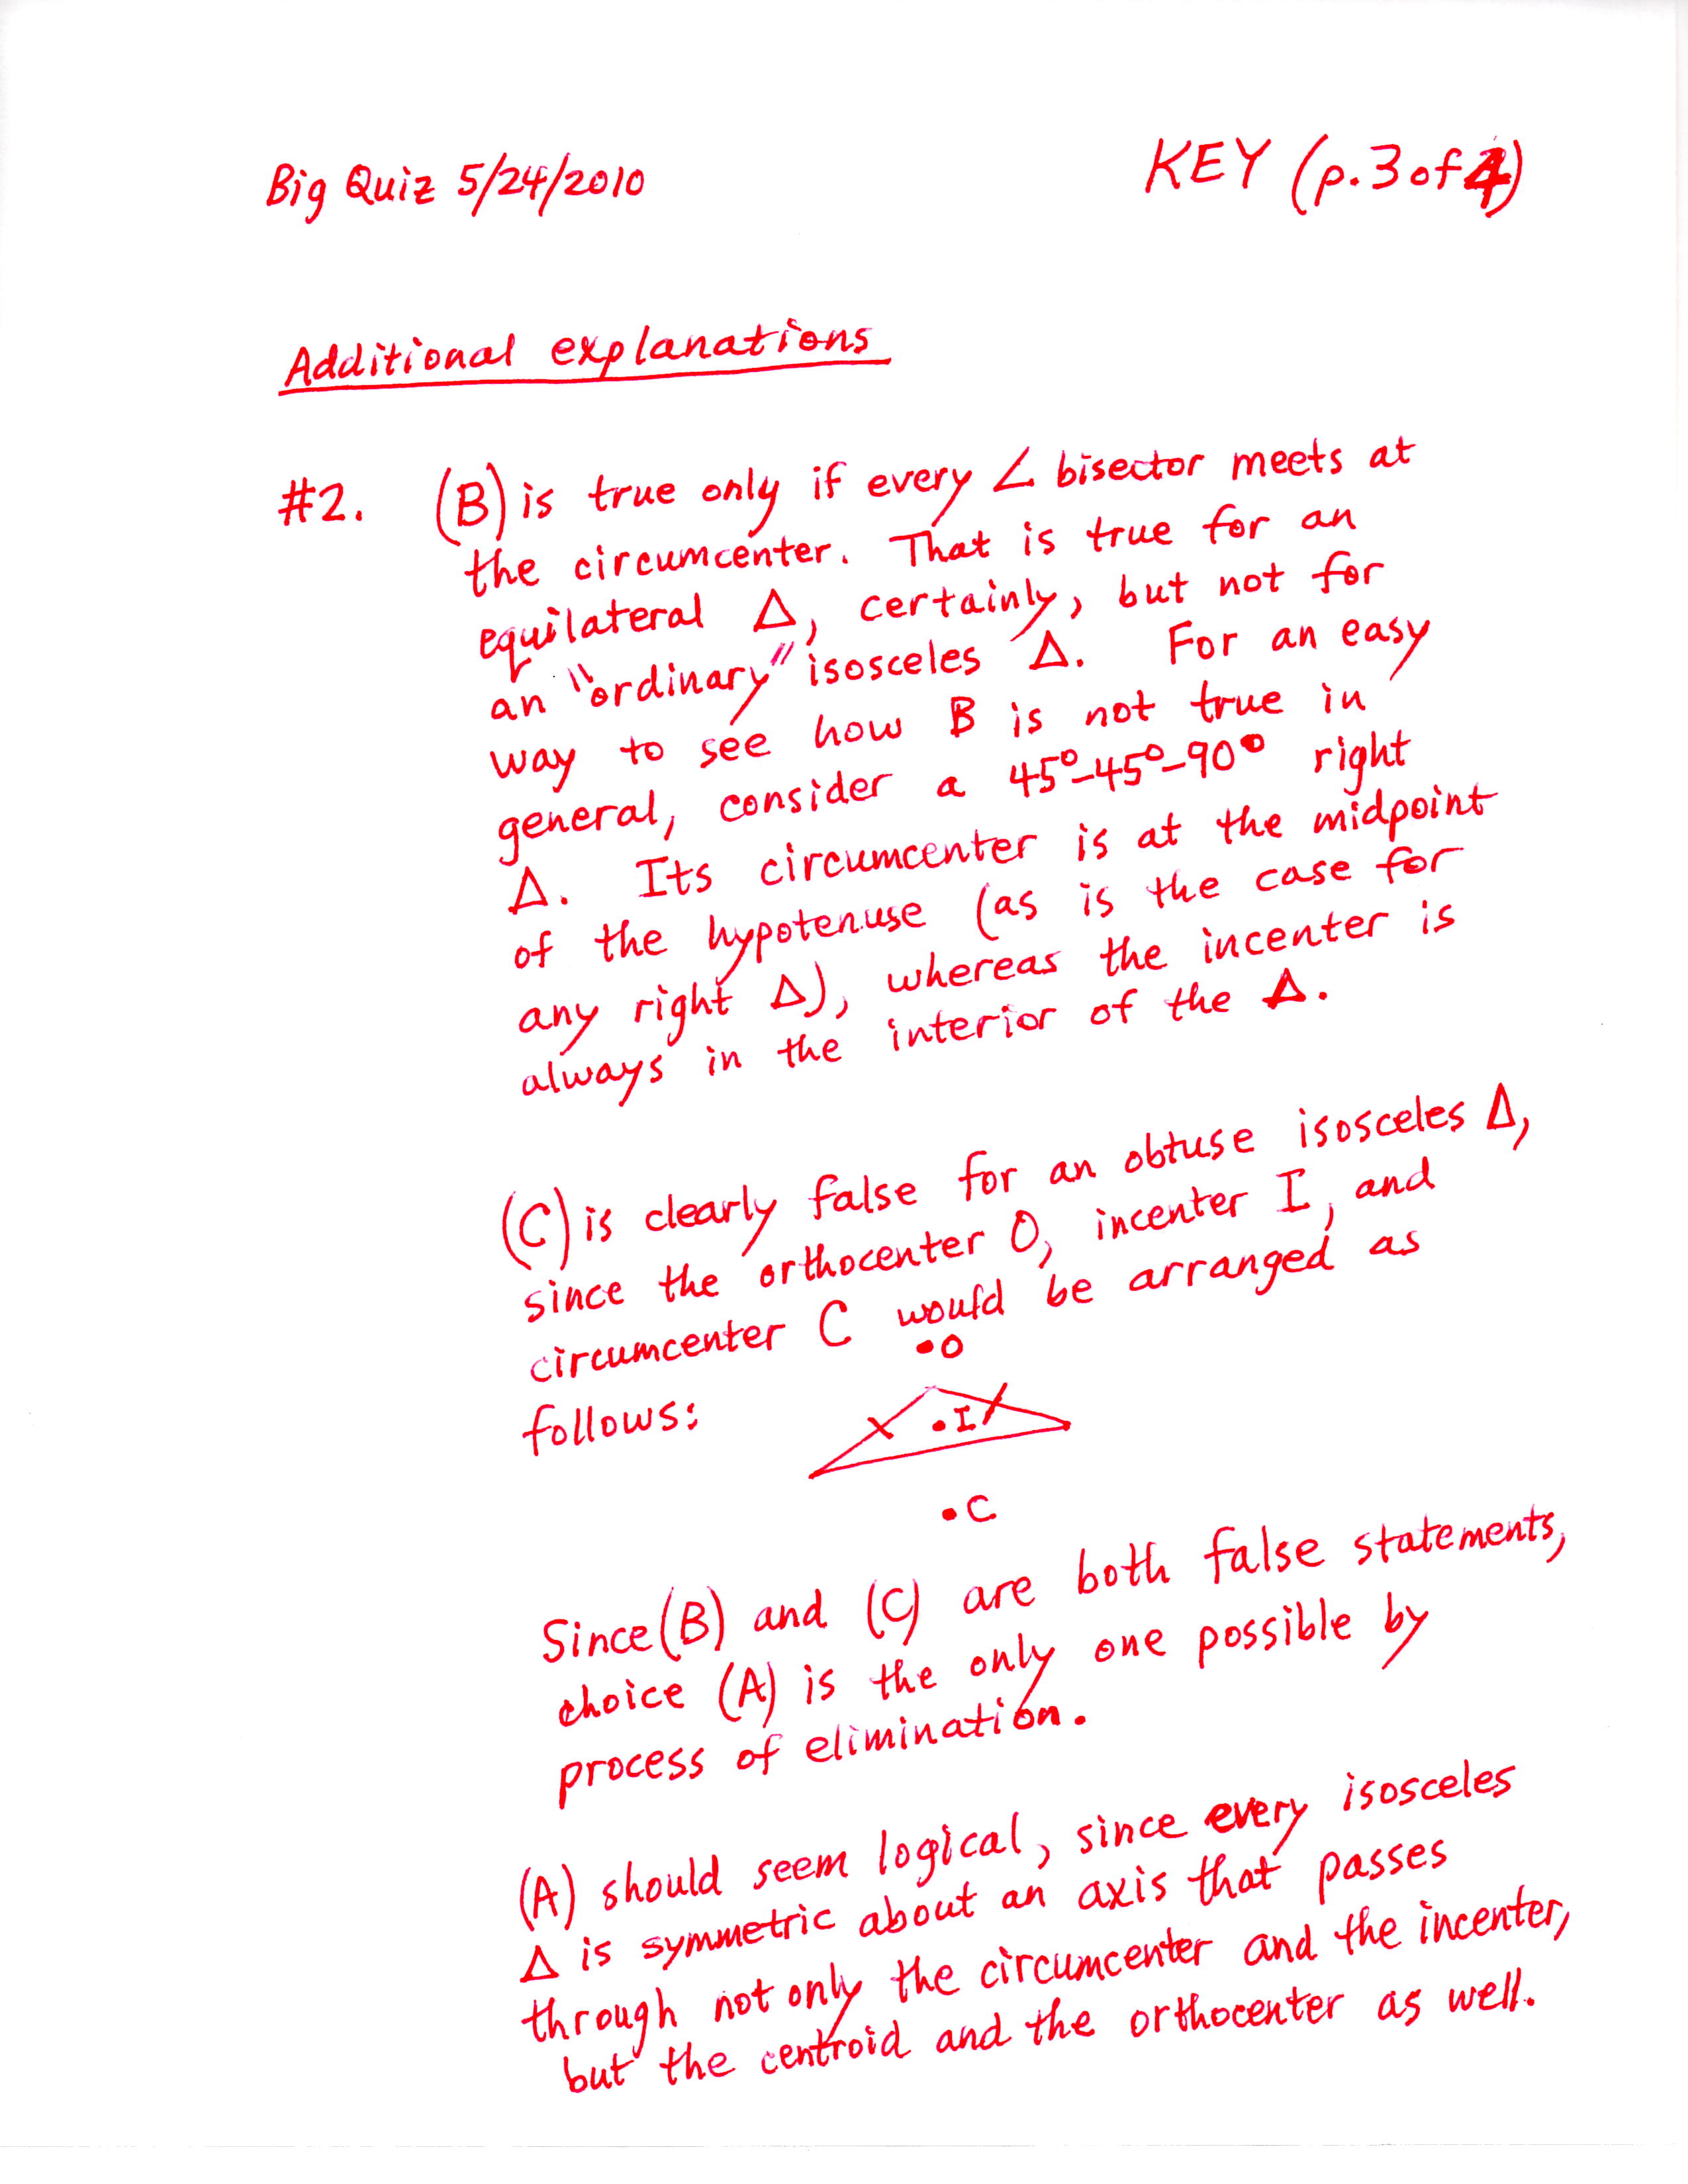 Big Quiz 5/24/2010
KEY (p.3 of 4)
Additional explanations
#2. (B) is true only if every ∠ bisector meets at
the circumcenter. That is true for an
equilateral Δ, certainly, but not for
an "ordinary" isosceles Δ. For an easy
way to see how B is not true in
general, consider a 45°-45°-90° right
Δ. Its circumcenter is at the midpoint
of the hypotenuse (as is the case for
any right Δ), whereas the incenter is
always in the interior of the Δ.
(C) is clearly false for an obtuse isosceles Δ,
since the orthocenter O, incenter I, and
circumcenter C would be arranged as
follows:
•O
•I
•C
Since (B) and (C) are both false statements,
choice (A) is the only one possible by
process of elimination.
(A) should seem logical, since every isosceles
Δ is symmetric about an axis that passes
through not only the circumcenter and the incenter,
but the centroid and the orthocenter as well.